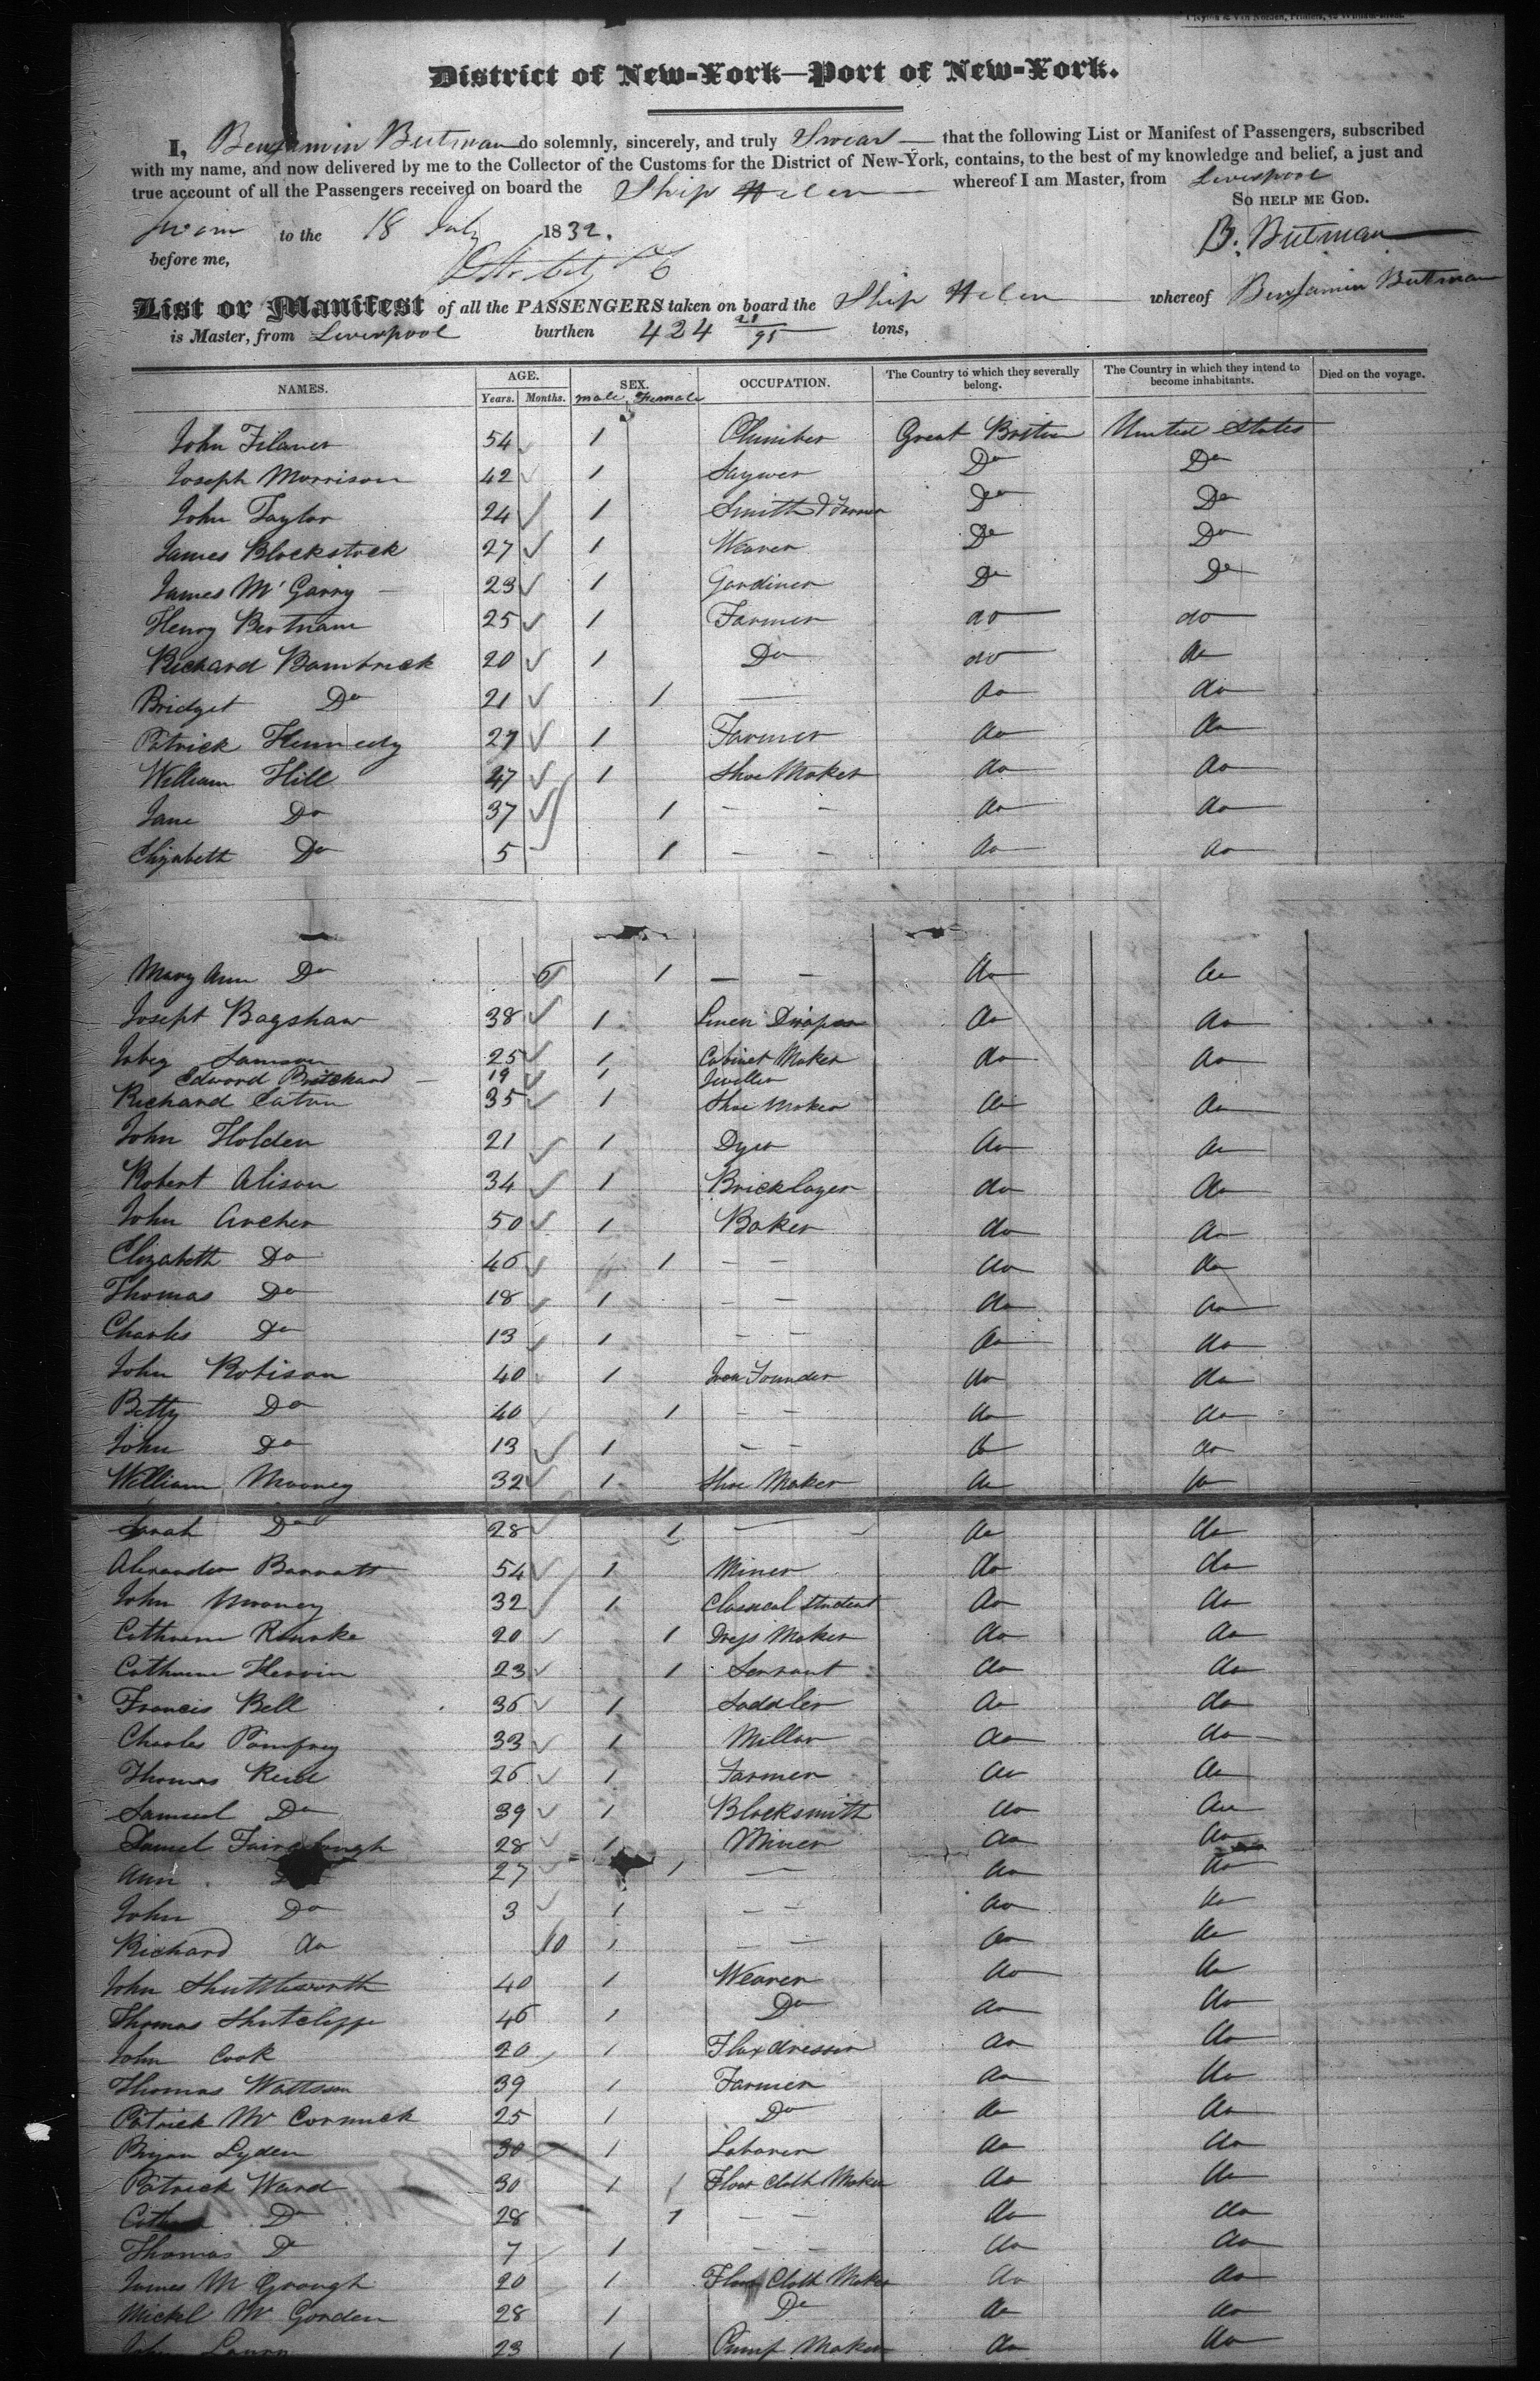 District of New-York—Port of New-York.
I, Benjamin Butman do solemnly, sincerely, and truly Swear — that the following List or Manifest of Passengers, subscribed
with my name, and now delivered by me to the Collector of the Customs for the District of New-York, contains, to the best of my knowledge and belief, a just and
true account of all the Passengers received on board the Ship Helen whereof I am Master, from Liverpool
So help me God.
Sworn to the 18 July 1832. B. Butman
before me,
List or Manifest of all the PASSENGERS taken on board the Ship Helen whereof Benjamin Butman
is Master, from Liverpool burthen 424 21/95 tons,
NAMES. AGE. Years. Months. SEX. male Female OCCUPATION. The Country to which they severally belong. The Country in which they intend to become inhabitants. Died on the voyage.
John 54 1 Plumber Great Britain United States
Joseph Morrison 42 1 Sawyer Do Do
John Taylor 24 1 Smith & Farmer Do Do
James Blockstock 27 1 Weaver Do Do
James Mc Garry 23 1 Gardiner Do Do
Henry Bertram 25 1 Farmer do do
Richard Bambrick 20 1 Do do do
Bridget Do 21 1 — do do
Patrick Hennedy 27 1 Farmer do do
William Hill 47 1 Shoe Maker do do
Jane Do 37 1 — — do do
Elizabeth Do 5 1 — — do do
Mary Ann Do 6 1 — — do do
Joseph Bagshaw 38 1 Linen Draper do do
Samson 25 1 Cabinet Maker do do
Edward Pritchard — 19 1 Jeweller
Richard Eaton 35 1 Shoe Maker do do
John Holden 21 1 Dyer do do
Robert Alison 34 1 Bricklayer do do
John Archer 50 1 Baker do do
Elizabeth Do 46 1 — — do do
Thomas Do 18 1 — — do do
Charles Do 13 1 — — do do
John Robison 40 1 Iron Founder do do
Betty Do 40 1 — — do do
John Do 13 1 — — do do
William Mooney 32 1 Shoe Maker do do
Sarah Do 28 1 — do do
Alexander Barratt 54 1 Miner do do
John Mooney 32 1 Classical Student do do
Catherine Rourke 20 1 Dress Maker do do
Catherine 23 1 Servant do do
Francis Bell 36 1 Saddler do do
Charles Pomfrey 33 1 Miller do do
Thomas Reid 26 1 Farmer do do
Samuel Do 39 1 Blacksmith do do
Samuel 28 1 Miner do do
Ann 27 1 — do do
John Do 3 1 — — do do
Richard do 10 1 — — do do
John Shuttleworth 40 1 Weaver do do
Thomas Shutcliffe 46 1 Do do do
John Cook 20 1 Flaxdresser do do
Thomas Wattson 39 1 Farmer do do
Patrick Mc Cormick 25 1 Do do do
Bryan Lyden 30 1 Laborer do do
Patrick Ward 30 1 Floor Cloth Maker do do
Do 28 1 — — do do
Thomas Do 7 1 — — do do
James Mc Gough 20 1 Floor Cloth Maker do do
Mickl Mc Gorden 28 1 Do do do
John 23 1 Pump Maker do do